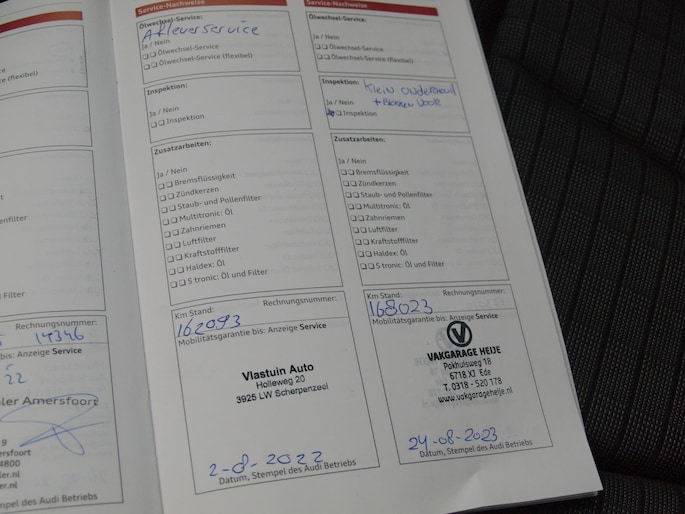 e
ce (flexibel)
t
enfilter
Filter
Rechnungsnummer:
14346
bis: Anzeige Service
22
ler Amersfoort
9
ersfoort
4800
er.nl
er.nl
mpel des Audi Betriebs
Service-Nachweise
Ölwechsel-Service:
Afleverservice
Ja / Nein
Ölwechsel-Service
Ölwechsel-Service (flexibel)
Inspektion:
Ja / Nein
Inspektion
Zusatzarbeiten:
Ja / Nein
Bremsflüssigkeit
Zündkerzen
Staub- und Pollenfilter
Multitronic: Öl
Zahnriemen
Luftfilter
Kraftstofffilter
Haldex: Öl
S tronic: Öl und Filter
Km Stand: Rechnungsnummer:
162093
Mobilitätsgarantie bis: Anzeige Service
Vlastuin Auto
Holleweg 20
3925 LW Scherpenzeel
2-8-2022
Datum, Stempel des Audi Betriebs
Service-Nachweise
Ölwechsel-Service:
Ja / Nein
Ölwechsel-Service
Ölwechsel-Service (flexibel)
Inspektion: Klein onderhoud
Ja / Nein + Blokken voor
Inspektion
Zusatzarbeiten:
Ja / Nein
Bremsflüssigkeit
Zündkerzen
Staub- und Pollenfilter
Multitronic: Öl
Zahnriemen
Luftfilter
Kraftstofffilter
Haldex: Öl
S tronic: Öl und Filter
Km Stand: Rechnungsnummer:
168023
Mobilitätsgarantie bis: Anzeige Service
VAKGARAGE HEIJE
Pakhuisweg 18
6718 XJ Ede
T. 0318 - 520 178
www.vakgarageheije.nl
24-08-2023
Datum, Stempel des Audi Betriebs